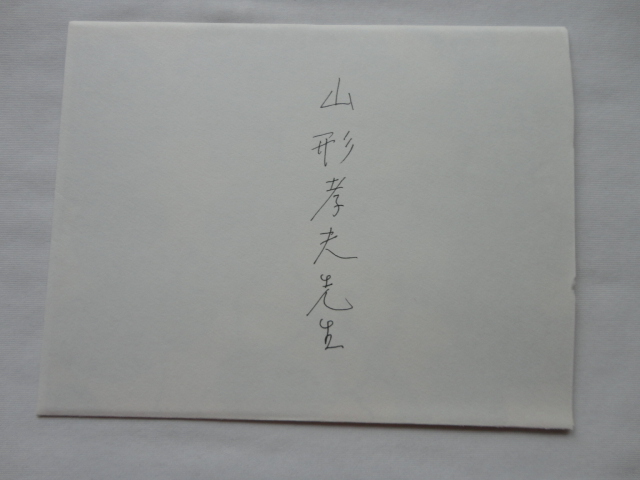 山形孝夫先生